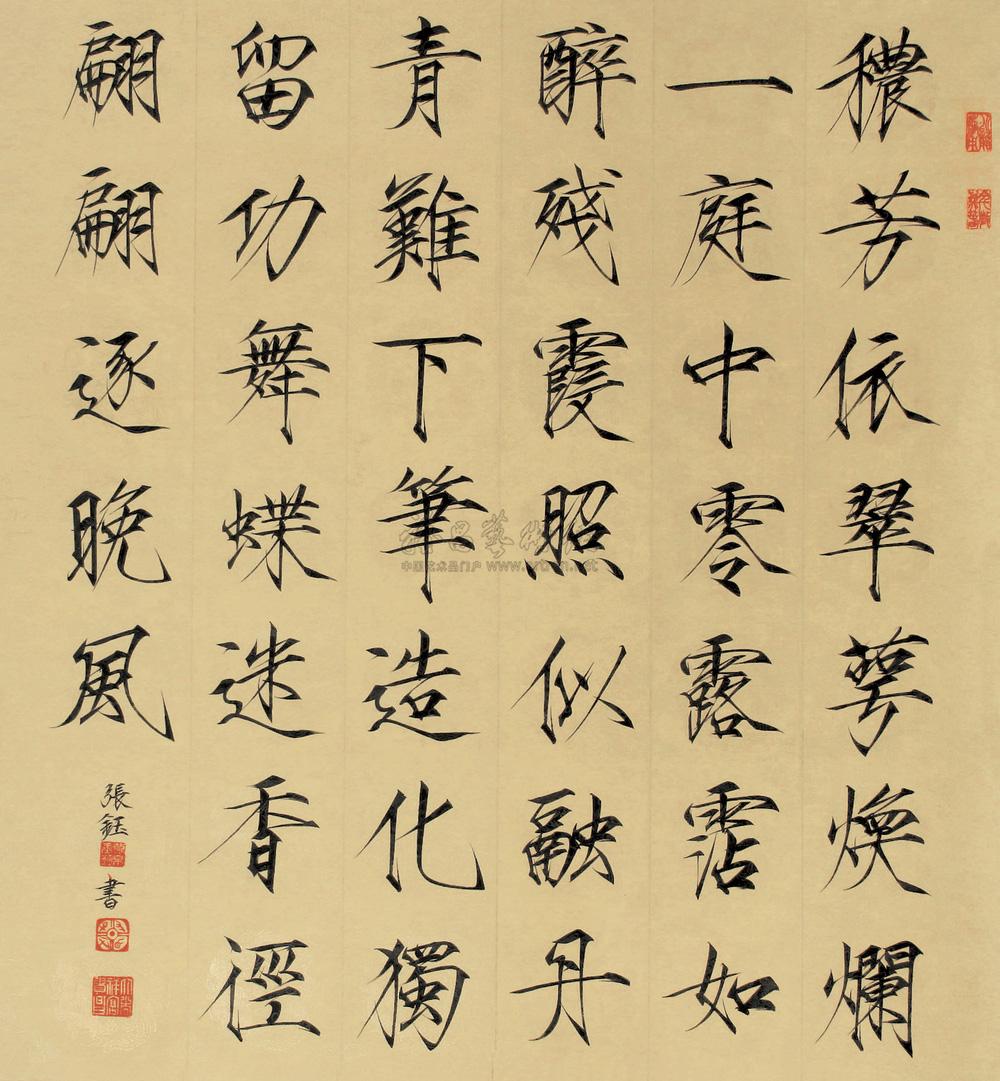 穠芳依翠萼煥爛
一庭中零露霑如
醉殘霞照似融丹
青難下筆造化獨
留功舞蝶迷香徑
翩翩逐晚風
張鈺
書
中国艺术品门户 www.artxun.net